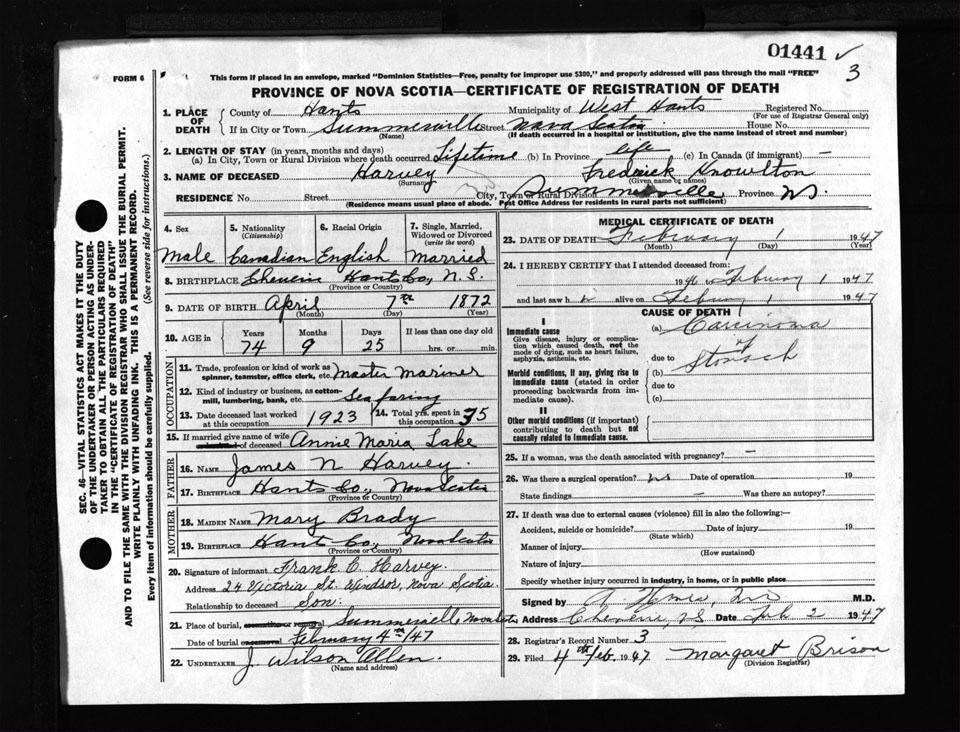 01441 ✓
3
FORM 6
This form if placed in an envelope, marked "Dominion Statistics—Free, penalty for improper use $300," and properly addressed will pass through the mail "FREE"
PROVINCE OF NOVA SCOTIA—CERTIFICATE OF REGISTRATION OF DEATH
SEC. 46—VITAL STATISTICS ACT MAKES IT THE DUTY
OF THE UNDERTAKER OR PERSON ACTING AS UNDER-
TAKER TO OBTAIN ALL THE PARTICULARS REQUIRED
IN THE "CERTIFICATE OF REGISTRATION OF DEATH"
AND TO FILE THE SAME WITH THE DIVISION REGISTRAR WHO SHALL ISSUE THE BURIAL PERMIT.
WRITE PLAINLY WITH UNFADING INK. THIS IS A PERMANENT RECORD.
Every item of information should be carefully supplied. (See reverse side for instructions.)
1. PLACE OF DEATH County of Hants Municipality of West Hants Registered No.
(For use of Registrar General only)
If in City or Town Summerville Street Nova Scotia House No.
(Name) (If death occurred in a hospital or institution, give the name instead of street and number)
2. LENGTH OF STAY (in years, months and days)
(a) In City, Town or Rural Division where death occurred Lifetime (b) In Province life (c) In Canada (if immigrant) —
3. NAME OF DECEASED Harvey Frederick Knowlton
(Surname) (Given name or names)
RESIDENCE No. Street City, Town or Rural Division Summerville Province NS
(Residence means usual place of abode. Post Office Address for residents in rural parts not sufficient)
4. Sex 5. Nationality (Citizenship) 6. Racial Origin 7. Single, Married, Widowed or Divorced (write the word)
Male Canadian English Married
8. BIRTHPLACE Cheverie Hants Co, N.S.
(Province or Country)
9. DATE OF BIRTH April 7th 1872
(Month) (Day) (Year)
10. AGE in Years Months Days If less than one day old
74 9 25 hrs. or min.
OCCUPATION
11. Trade, profession or kind of work as spinner, teamster, office clerk, etc. Master Mariner
12. Kind of industry or business, as cotton-mill, lumbering, bank, etc. Seafaring
13. Date deceased last worked at this occupation 1923 14. Total yrs. spent in this occupation 35
15. If married give name of wife of deceased Annie Maria Lake
FATHER
16. NAME James N Harvey.
17. BIRTHPLACE Hants Co., Nova Scotia
(Province or Country)
MOTHER
18. MAIDEN NAME Mary Brady
19. BIRTHPLACE Hants Co., Nova Scotia
(Province or Country)
20. Signature of informant Frank C Harvey.
Address 24 Victoria St. Windsor, Nova Scotia.
Relationship to deceased Son.
21. Place of burial, Summerville Nova Scotia
Date of burial February 4th/47
22. UNDERTAKER J. Wilson Allen.
(Name and address)
MEDICAL CERTIFICATE OF DEATH
23. DATE OF DEATH February 1 1947
(Month) (Day) (Year)
24. I HEREBY CERTIFY that I attended deceased from:
1946 to Febuary 1 1947
and last saw h alive on Febuary 1 1947
CAUSE OF DEATH
I
Immediate cause
Give disease, injury or complication which caused death, not the mode of dying, such as heart failure, asphyxia, asthenia, etc.
(a) Carcinoma of
due to
Morbid conditions, if any, giving rise to immediate cause (stated in order proceeding backwards from immediate cause).
(b) Stomach
due to
(c)
II
Other morbid conditions (if important) contributing to death but not causally related to immediate cause.
25. If a woman, was the death associated with pregnancy? —
26. Was there a surgical operation? no Date of operation 19
State findings — Was there an autopsy?
27. If death was due to external causes (violence) fill in also the following:—
Accident, suicide or homicide? Date of injury 19
(State which)
Manner of injury
(How sustained)
Nature of injury
Specify whether injury occurred in industry, in home, or in public place
Signed by M.D.
Address Cheverie, N.S. Date Feb 2 1947
28. Registrar's Record Number 3
29. Filed 4th Feb. 1947 Margaret Brison
(Division Registrar)